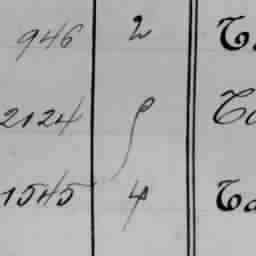 946 2 T
2124 T
1545 4 Ta